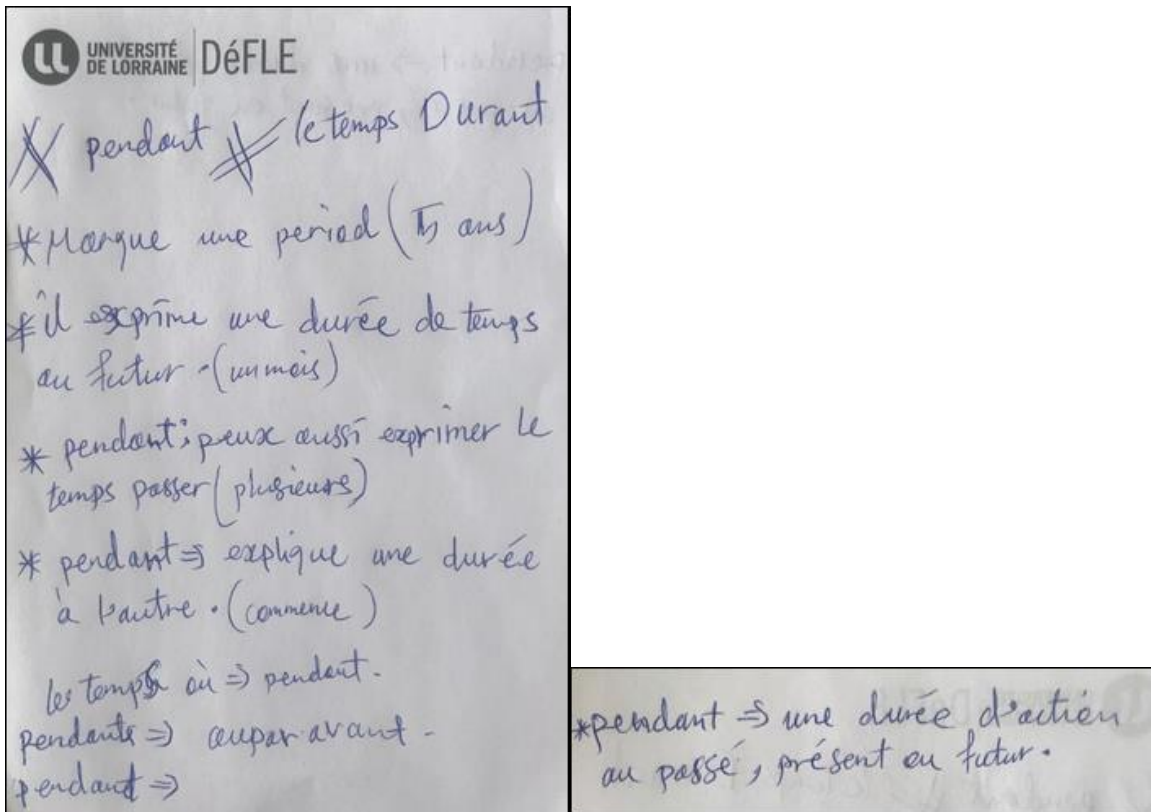 UNIVERSITÉ
DE LORRAINE
DéFLE
pendant le temps Durant
*Marque une period ( ans)
*il exprime une durée de temps
au futur. (un mois)
* pendant: peux aussi exprimer le
temps passer (plusieurs)
* pendant => explique une durée
à l'autre. (commence)
les temps où => pendant.
pendante => auparavant.
pendant =>
*pendant => une durée d'action
au passé, présent ou futur.